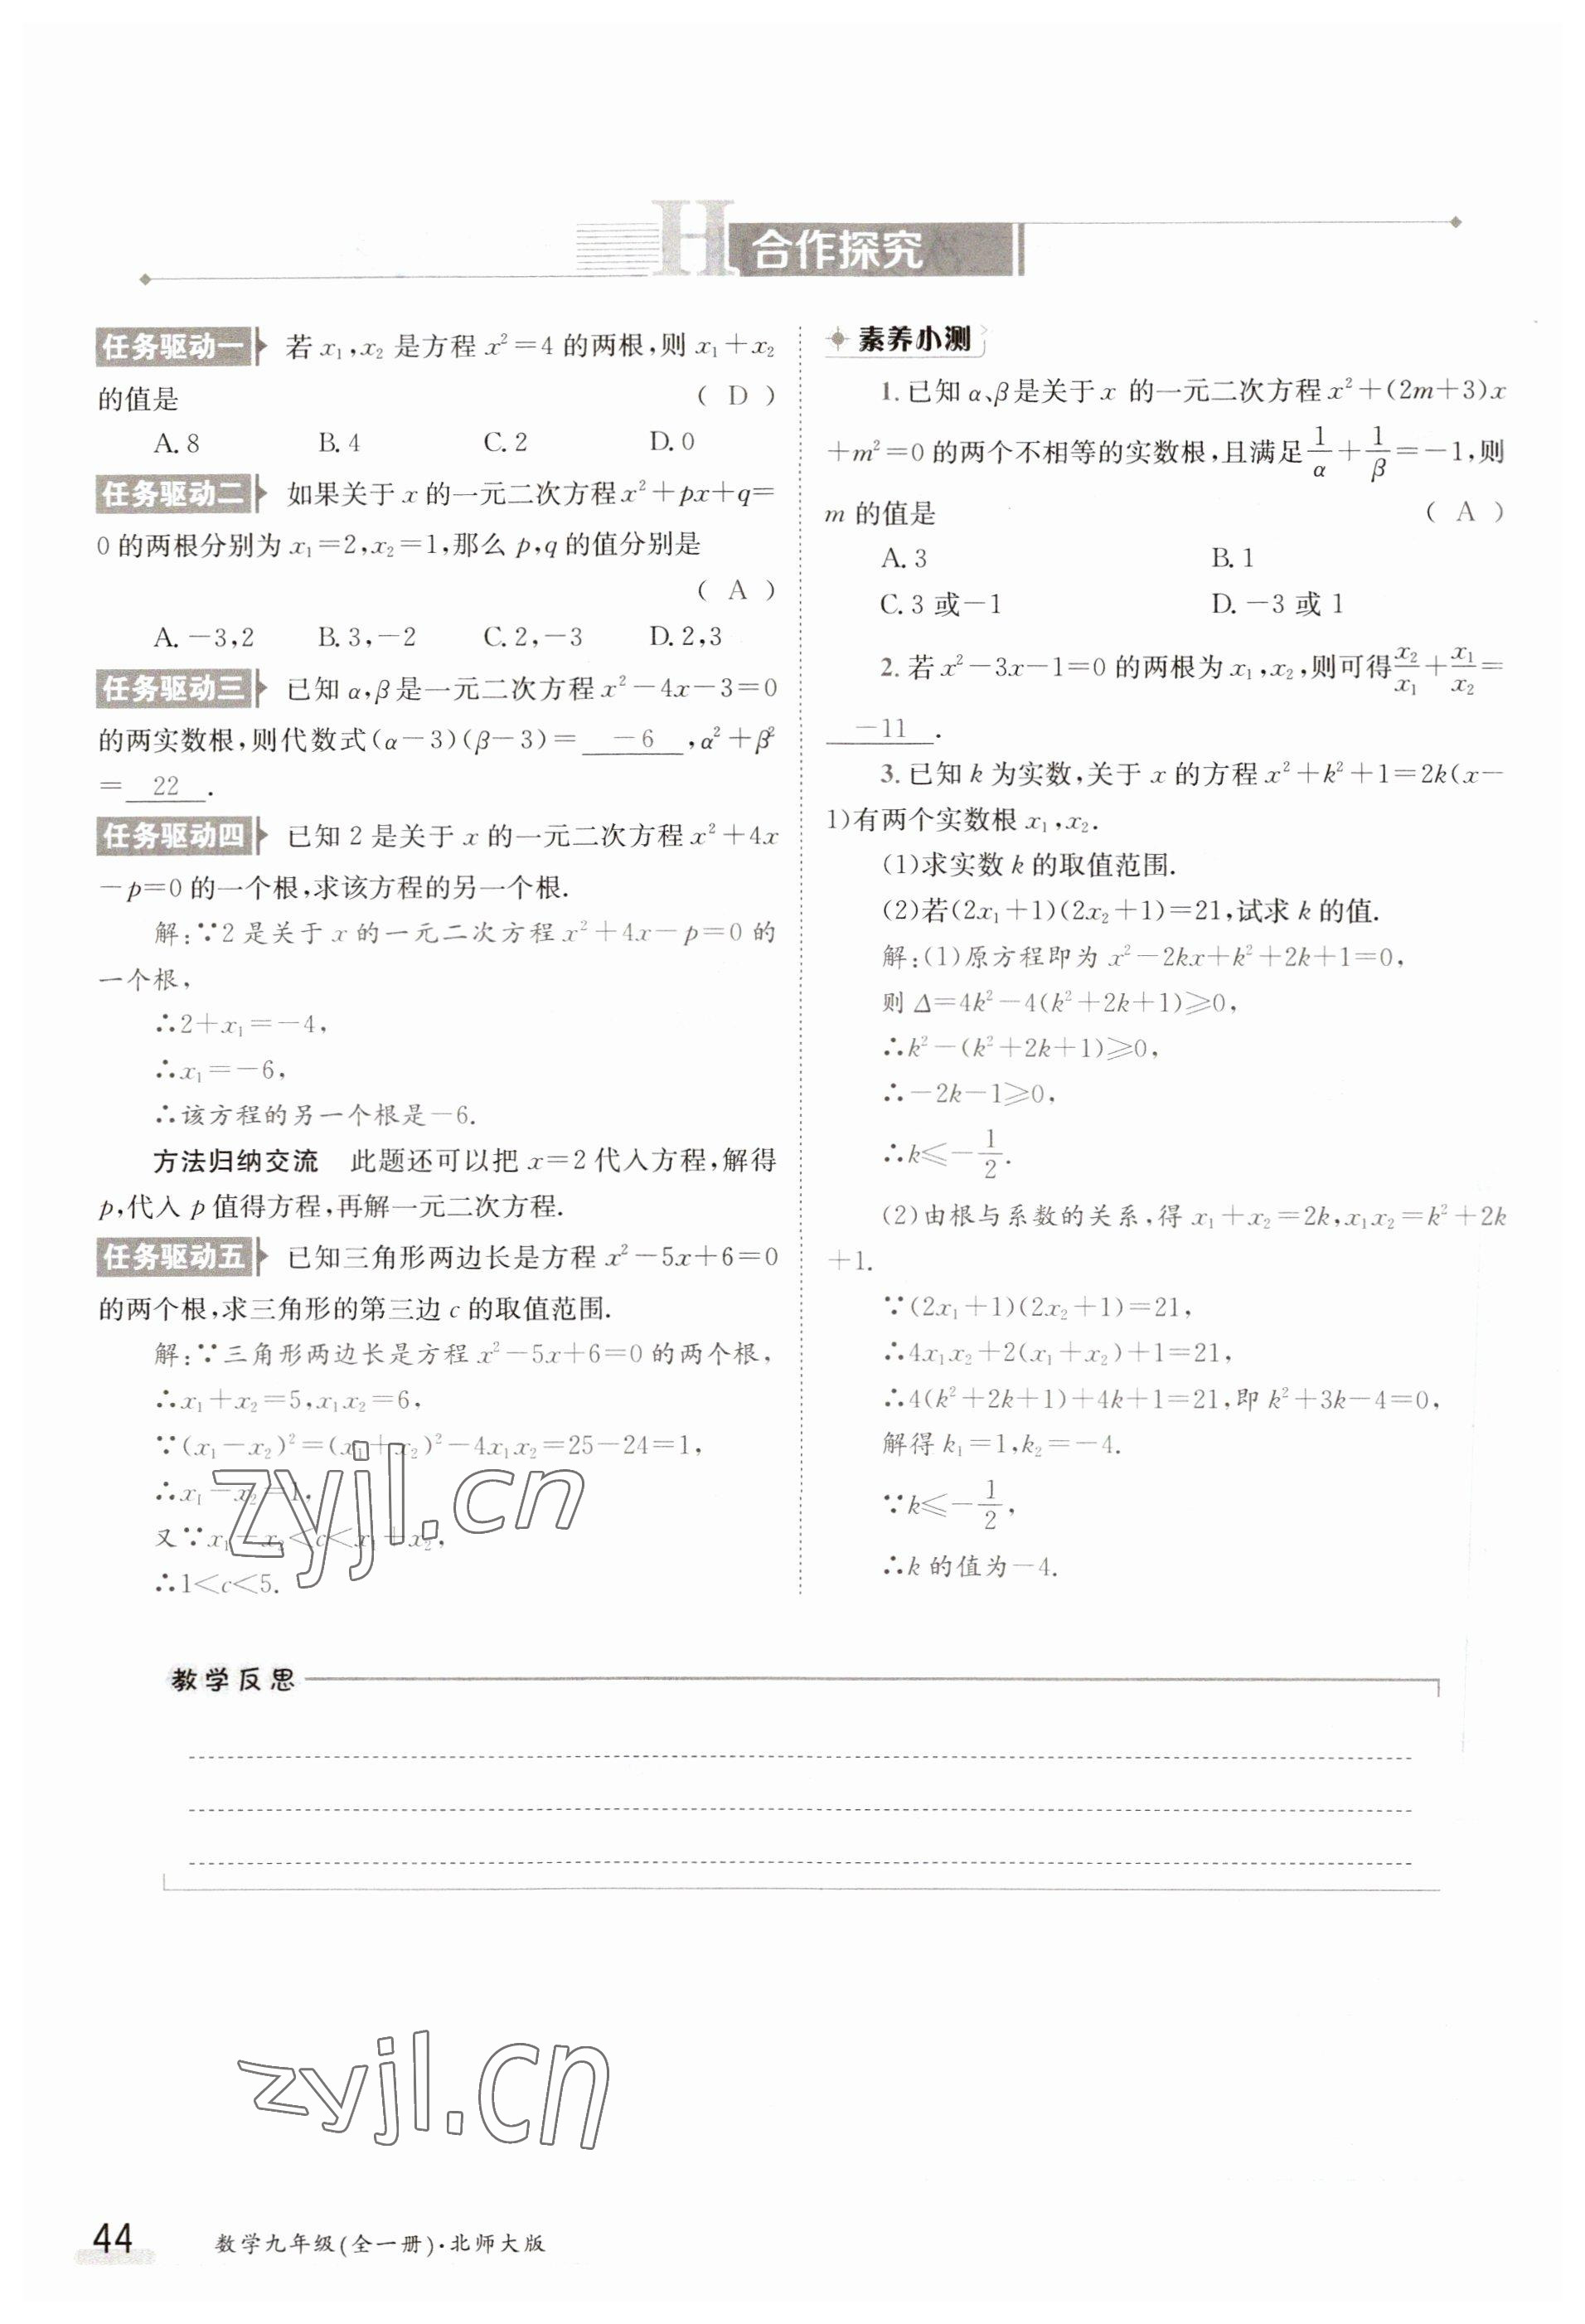 H 合作探究
任务驱动一 若 x₁,x₂ 是方程 x²=4 的两根,则 x₁+x₂
的值是 ( D )
A. 8 B. 4 C. 2 D. 0
任务驱动二 如果关于 x 的一元二次方程 x²+px+q=
0 的两根分别为 x₁=2,x₂=1,那么 p,q 的值分别是
( A )
A. －3,2 B. 3,－2 C. 2,－3 D. 2,3
任务驱动三 已知 α,β是一元二次方程 x²－4x－3=0
的两实数根,则代数式(α－3)(β－3)= －6 ,α²+β²
= 22 .
任务驱动四 已知 2 是关于 x 的一元二次方程 x²+4x
－p=0 的一个根,求该方程的另一个根.
解:∵2 是关于 x 的一元二次方程 x²+4x－p=0 的
一个根,
∴2+x₁=－4,
∴x₁=－6,
∴该方程的另一个根是－6.
方法归纳交流 此题还可以把 x=2 代入方程,解得
p,代入 p 值得方程,再解一元二次方程.
任务驱动五 已知三角形两边长是方程 x²－5x+6=0
的两个根,求三角形的第三边 c 的取值范围.
解:∵三角形两边长是方程 x²－5x+6=0 的两个根,
∴x₁+x₂=5,x₁x₂=6,
∵(x₁－x₂)²=(x₁+x₂)²－4x₁x₂=25－24=1,
∴x₁－x₂=1,
又∵x₁－x₂<c<x₁+x₂,
∴1<c<5.
素养小测
1. 已知 α、β是关于 x 的一元二次方程 x²+(2m+3)x
+m²=0 的两个不相等的实数根,且满足 1/α+1/β=－1,则
m 的值是 ( A )
A. 3 B. 1
C. 3 或－1 D. －3 或 1
2. 若 x²－3x－1=0 的两根为 x₁,x₂,则可得 x₂/x₁+x₁/x₂=
－11 .
3. 已知 k 为实数,关于 x 的方程 x²+k²+1=2k(x－
1)有两个实数根 x₁,x₂.
(1)求实数 k 的取值范围.
(2)若(2x₁+1)(2x₂+1)=21,试求 k 的值.
解:(1)原方程即为 x²－2kx+k²+2k+1=0,
则 Δ=4k²－4(k²+2k+1)⩾0,
∴k²－(k²+2k+1)⩾0,
∴－2k－1⩾0,
∴k⩽－1/2.
(2)由根与系数的关系,得 x₁+x₂=2k,x₁x₂=k²+2k
+1.
∵(2x₁+1)(2x₂+1)=21,
∴4x₁x₂+2(x₁+x₂)+1=21,
∴4(k²+2k+1)+4k+1=21,即 k²+3k－4=0,
解得 k₁=1,k₂=－4.
∵k⩽－1/2,
∴k 的值为－4.
zyjl.cn
教学反思
zyjl.cn
44 数学九年级(全一册)·北师大版